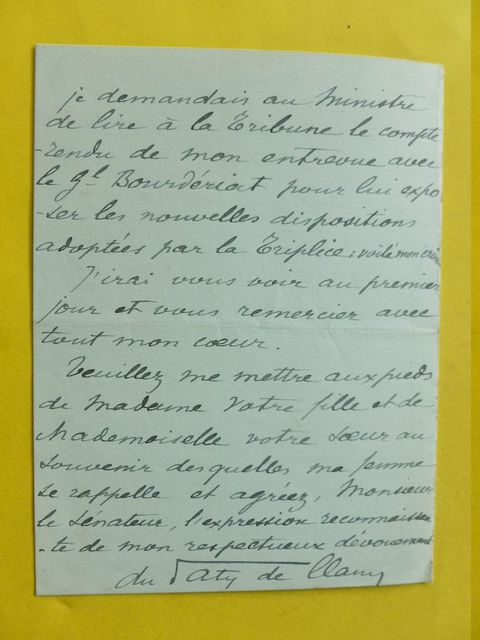 je demandais au Ministre
de lire à la Tribune le compte
-rendu de mon entrevue avec
le Gal Bourdériat pour lui expo
-ser les nouvelles dispositions
adoptées par la Triplice : voilà mon crime
J'irai vous voir au premier
jour et vous remercier avec
tout mon cœur.
Veuillez me mettre aux pieds
de Madame Votre fille et de
Mademoiselle votre sœur au
souvenir desquelles ma femme
se rappelle et agréez, Monsieur
le Sénateur, l'expression reconnaissan
-te de mon respectueux dévouement
du Paty de Clam